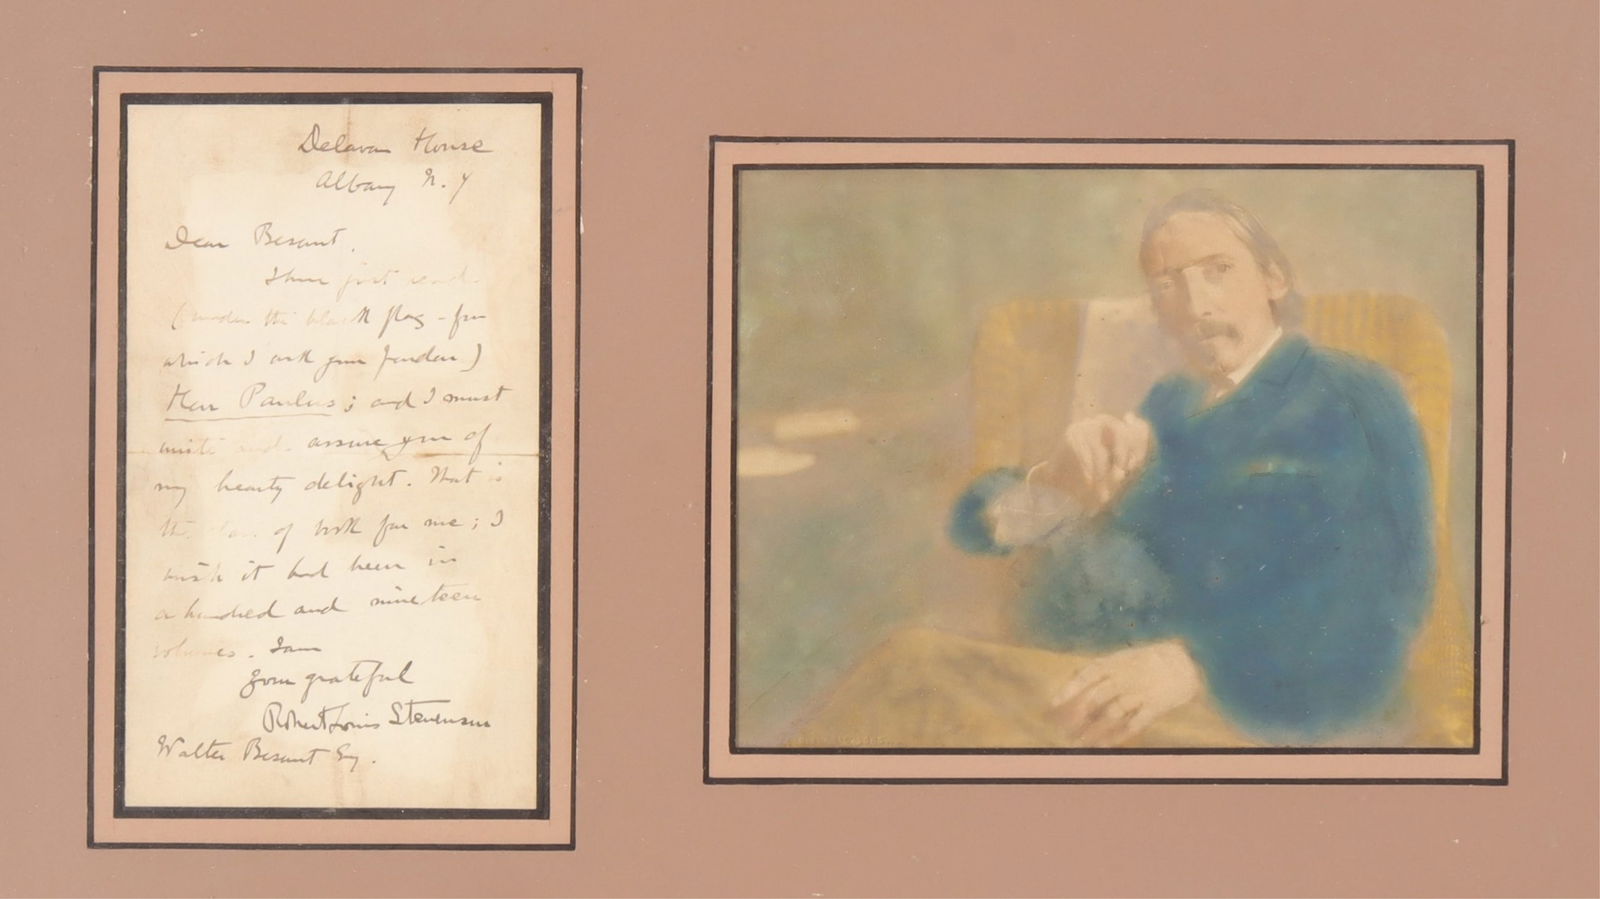 Delavan House
Albany N. Y
Dear Besant,
I have just read
(under the black flag - for
which I ask your pardon)
Herr Paulus; and I must
write and assure you of
my hearty delight. That is
the of book for me; I
wish it had been in
a hundred and nineteen
volumes. I am
Your grateful
Robert Louis Stevenson
Walter Besant Esq.